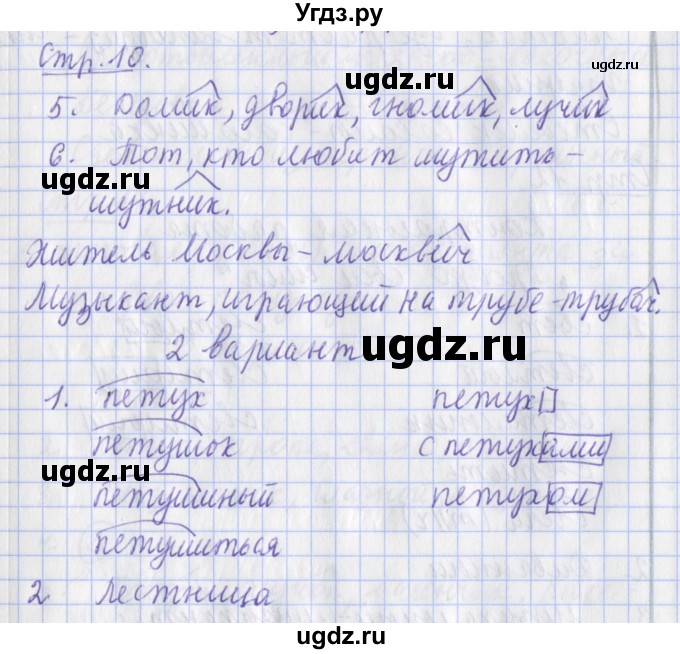 Угдз.ру
Стр. 10.
ugdz.ru
ugdz.ru
5. Домик, дворик, гномик, лучик
6. Тот, кто любит шутить -
ugdz.ru
шутник.
Житель Москвы - москвич
Музыкант, играющий на трубе - трубач.
2 вариант
ugdz.ru
1. петух петух
ugdz.ru
петушок с петухами
ugdz.ru
ugdz.ru
петушиный петухом
петушиться
2 Лестница
ugdz.ru
ugdz.ru